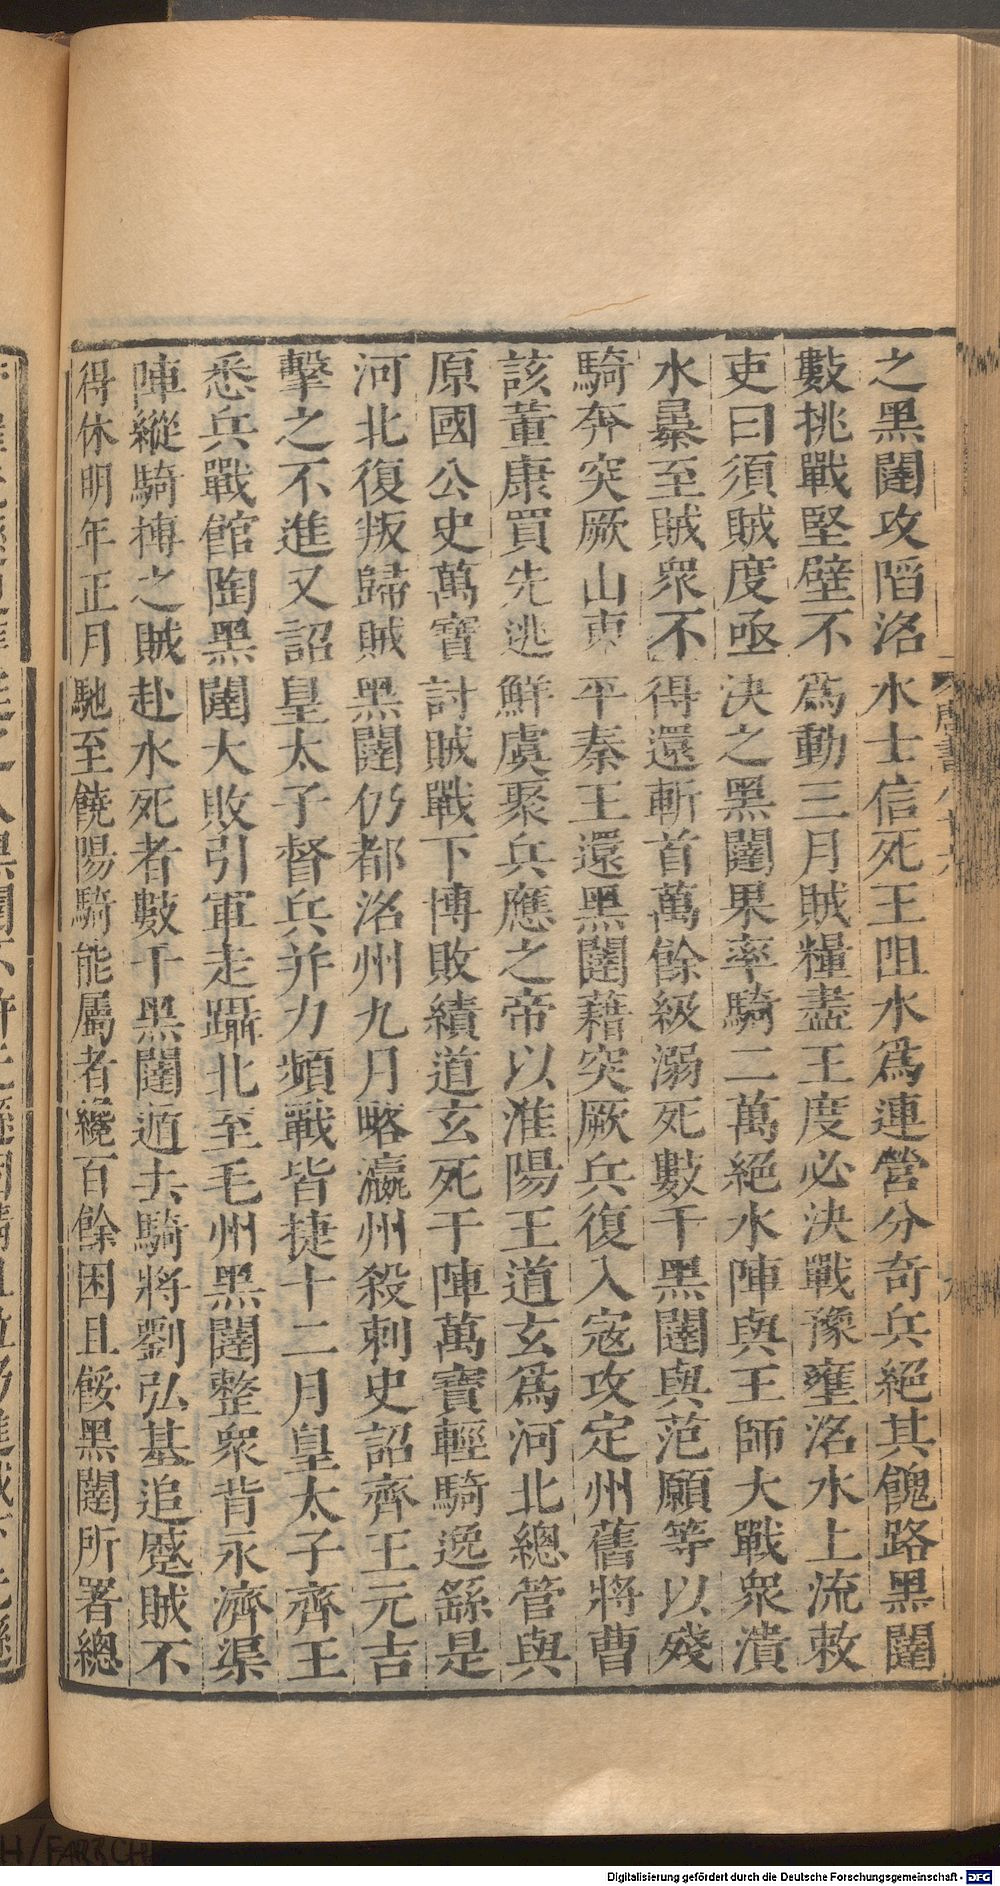 之黑闥攻陷洛水士信死王阻水爲連營分奇兵絕其餽路黑闥
數挑戰堅壁不爲動三月賊糧盡王度必決戰豫壅洛水上流敕
吏曰須賊度亟決之黑闥果率騎二萬絕水陣與王師大戰衆潰
水暴至賊衆不得還斬首萬餘級溺死數千黑闥與范願等以殘
騎奔突厥山東平秦王還黑闥藉突厥兵復入寇攻定州舊將曹
該董康買先逃鮮虞聚兵應之帝以淮陽王道玄爲河北總管與
原國公史萬寶討賊戰下博敗績道玄死于陣萬寶輕騎逸繇是
河北復叛歸賊黑闥仍都洛州九月略瀛州殺刺史詔齊王元吉
擊之不進又詔皇太子督兵并力頻戰皆捷十二月皇太子齊王
悉兵戰館陶黑闥大敗引軍走躡北至毛州黑闥整衆背永濟渠
陣縱騎搏之賊赴水死者數千黑闥遁去騎將劉弘基追蹙賊不
得休明年正月馳至饒陽騎能屬者纔百餘困且餒黑闥所署總
Digitalisierung gefördert durch die Deutsche Forschungsgemeinschaft - DFG